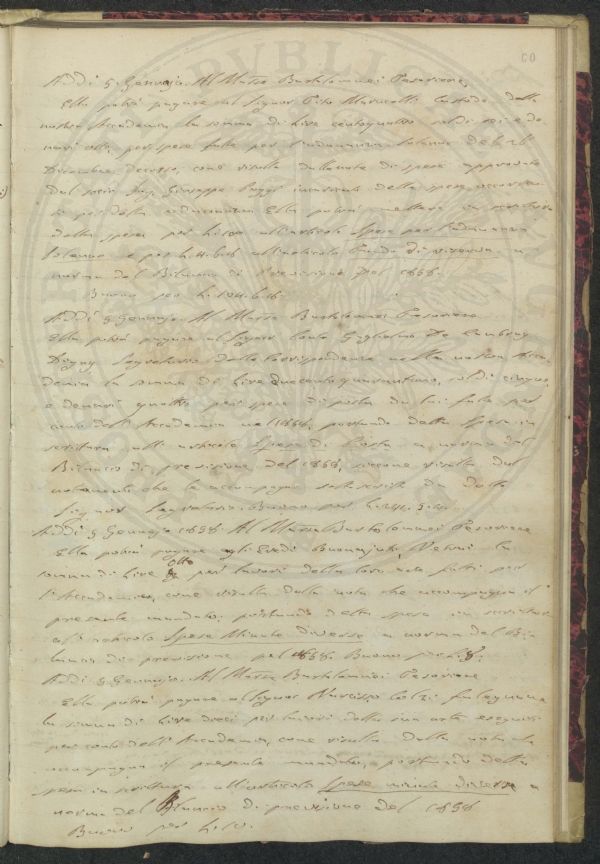 60
Addi 5 Gennajo. Al Marse Bartolommei Tesoriere
Ella potrà pagare al Signor Tito Marucelli Custode della
nostra Accademia la somma di Lire centoquattro soldi sei e de
nari otto, per spese fatte per l'adunanza solenne del
Decembre decorso, come resulta dalla nota di spese approvata
dal socio Ing. Giuseppe Poggi incaricato delle spese
per detta adunanza. Ella potrà mettere in scrittura
detta spesa per L. all'articolo Spese per l'adunanza
solenne e per L. all'articolo Fondo di riserva a
norma del Bilancio di Previsione del 1858.
Buono per L. 104.6.8.
Addi 5 Gennajo. Al Marse Bartolommei Tesoriere
Ella potrà pagare al Signor Conte Guglielmo De Cambray
Digny Segretario delle Corrispondenze nella nostra Acca
demia la somma di Lire duecento quarantuna, soldi cinque
e denari quattro per spese di posta da lui fatte per
conto dell'Accademia nel portando detta spesa in
scrittura all'articolo Spese di Posta a norma del
Bilancio di previsione del 1858, siccome resulta dal
notamento che la accompagna sottoscritto da detto
Signor Segretario. Buono per L. 241. 5. 4.
Addi 5 Gennajo 1858. Al Marse Bartolommei Tesoriere
Ella potrà pagare agli Eredi Buonajuti, la
otto
somma di Lire per lavori della loro arte fatti per
l'Accademia, come resulta dalla nota che accompagna il
presente mandato, portando detta spesa in scrittura
all'articolo Spese Minute diverse a norma del Bi
lancio di previsione pel 1858. Buono per L. 8.
Addi 5 Gennajo. Al Marse Bartolommei Tesoriere
Ella potrà pagare al Signor Narcisso falegname
la somma di Lire dieci per lavori della sua arte eseguiti
per conto dell'Accademia, come resulta dalla nota che
accompagna il presente mandato, portando detta
spesa in scrittura all'articolo Spese minute diverse a
norma del Bilancio di previsione del 1858
Buono per L. 10.